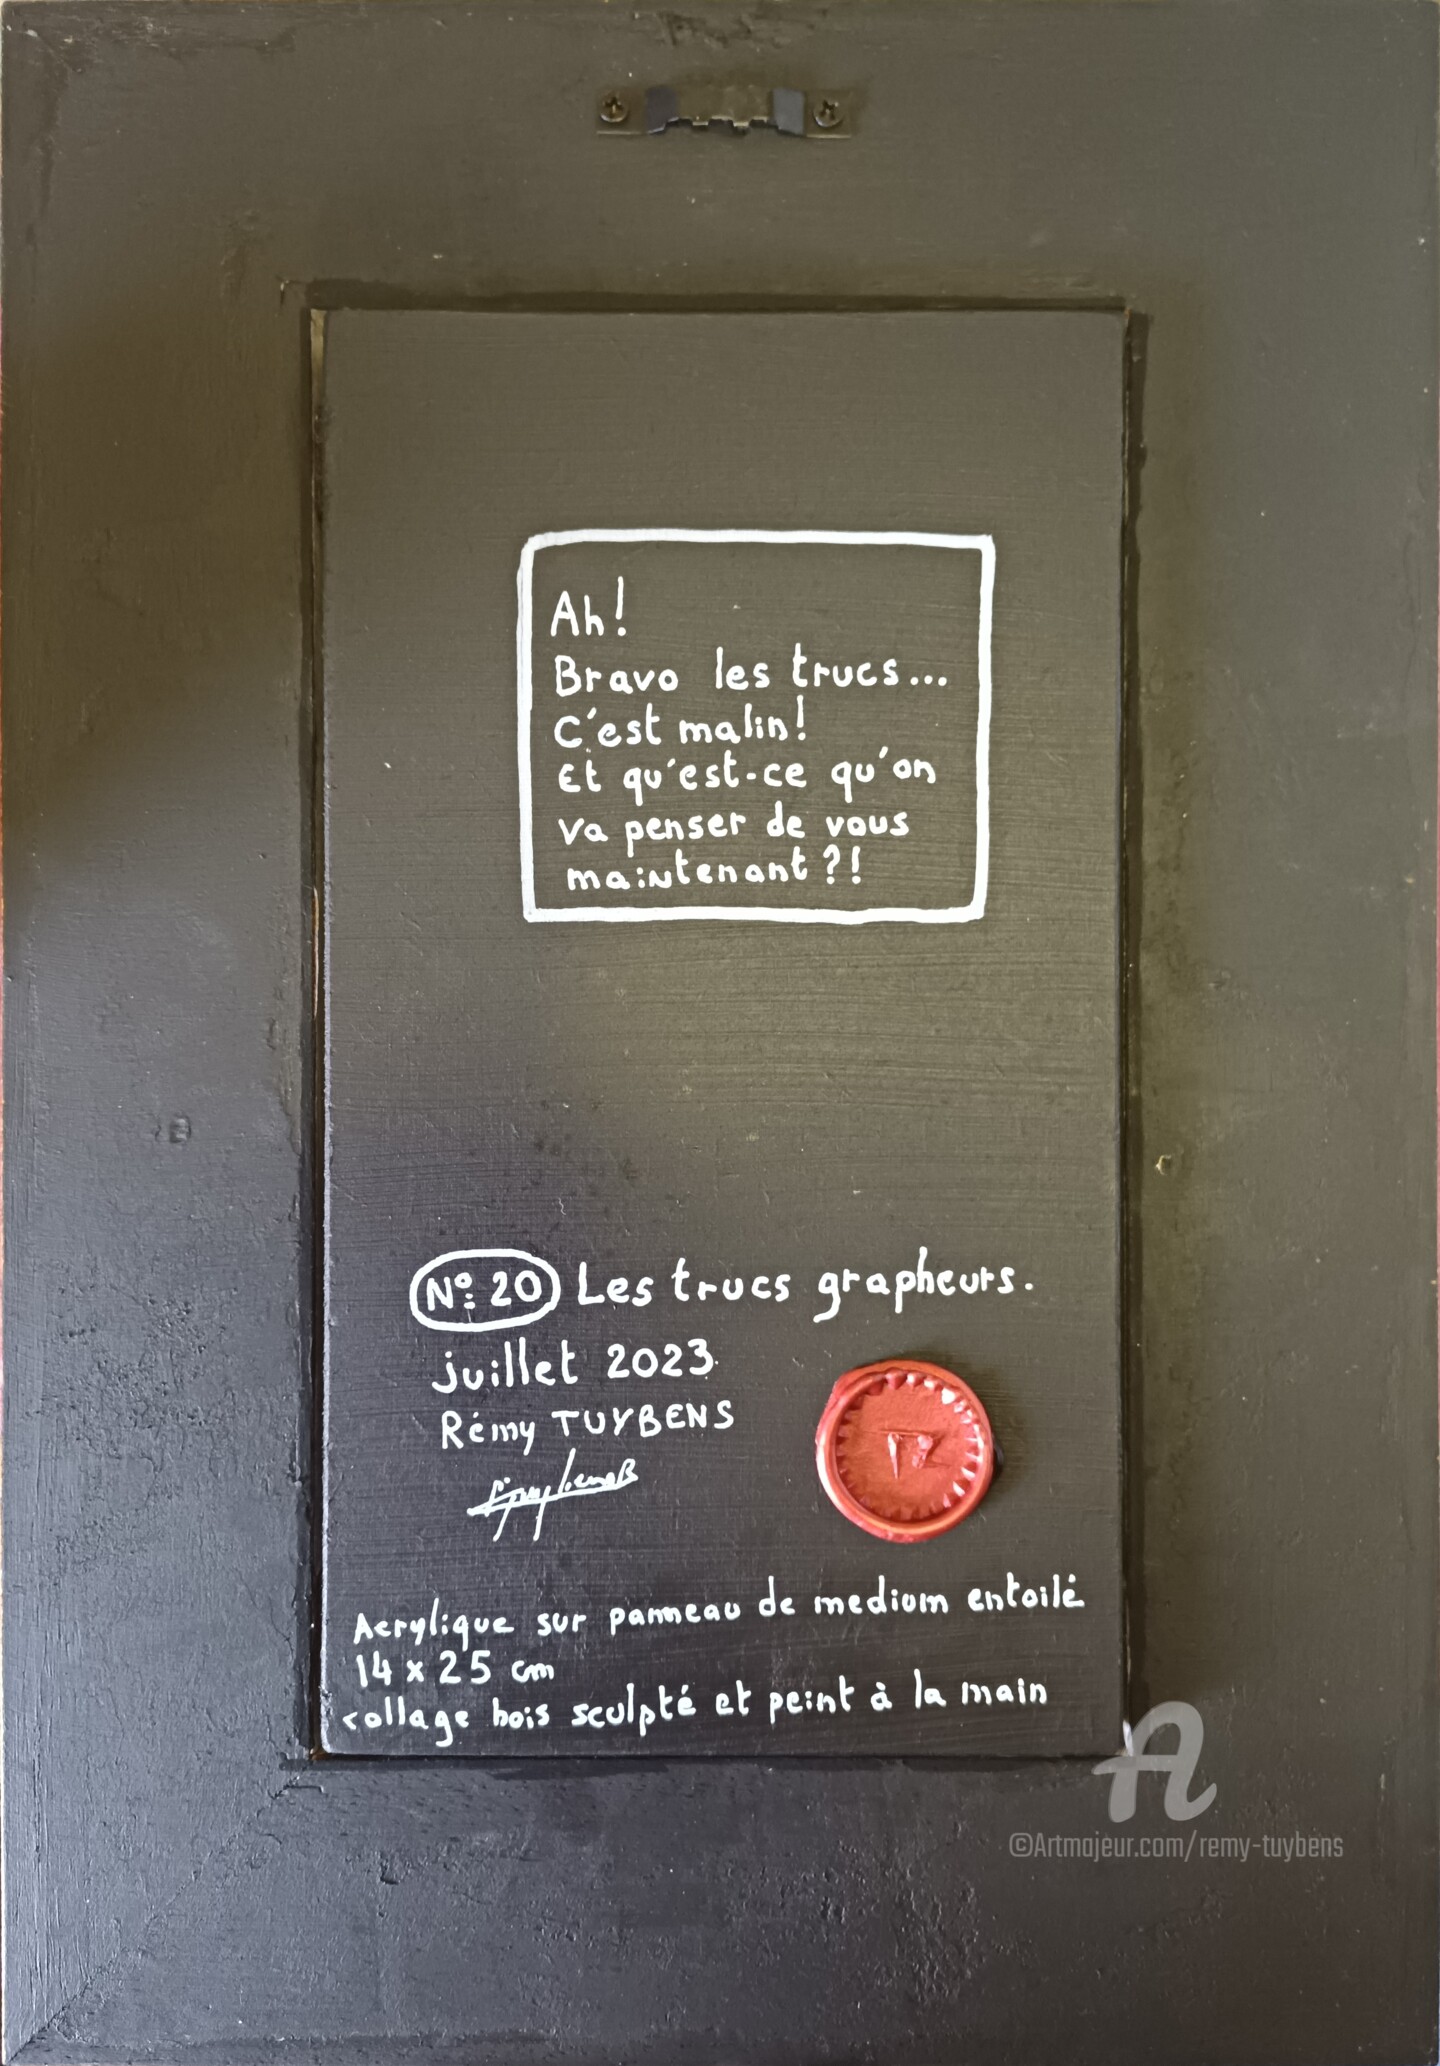 Ah!
Bravo les trucs...
C'est malin!
Et qu'est-ce qu'on
va penser de vous
maintenant ?!
N° 20 Les trucs grapheurs.
juillet 2023
Rémy TUYBENS
Acrylique sur panneau de medium entoilé
14 x 25 cm
collage bois sculpté et peint à la main
©Artmajeur.com/remy-tuybens